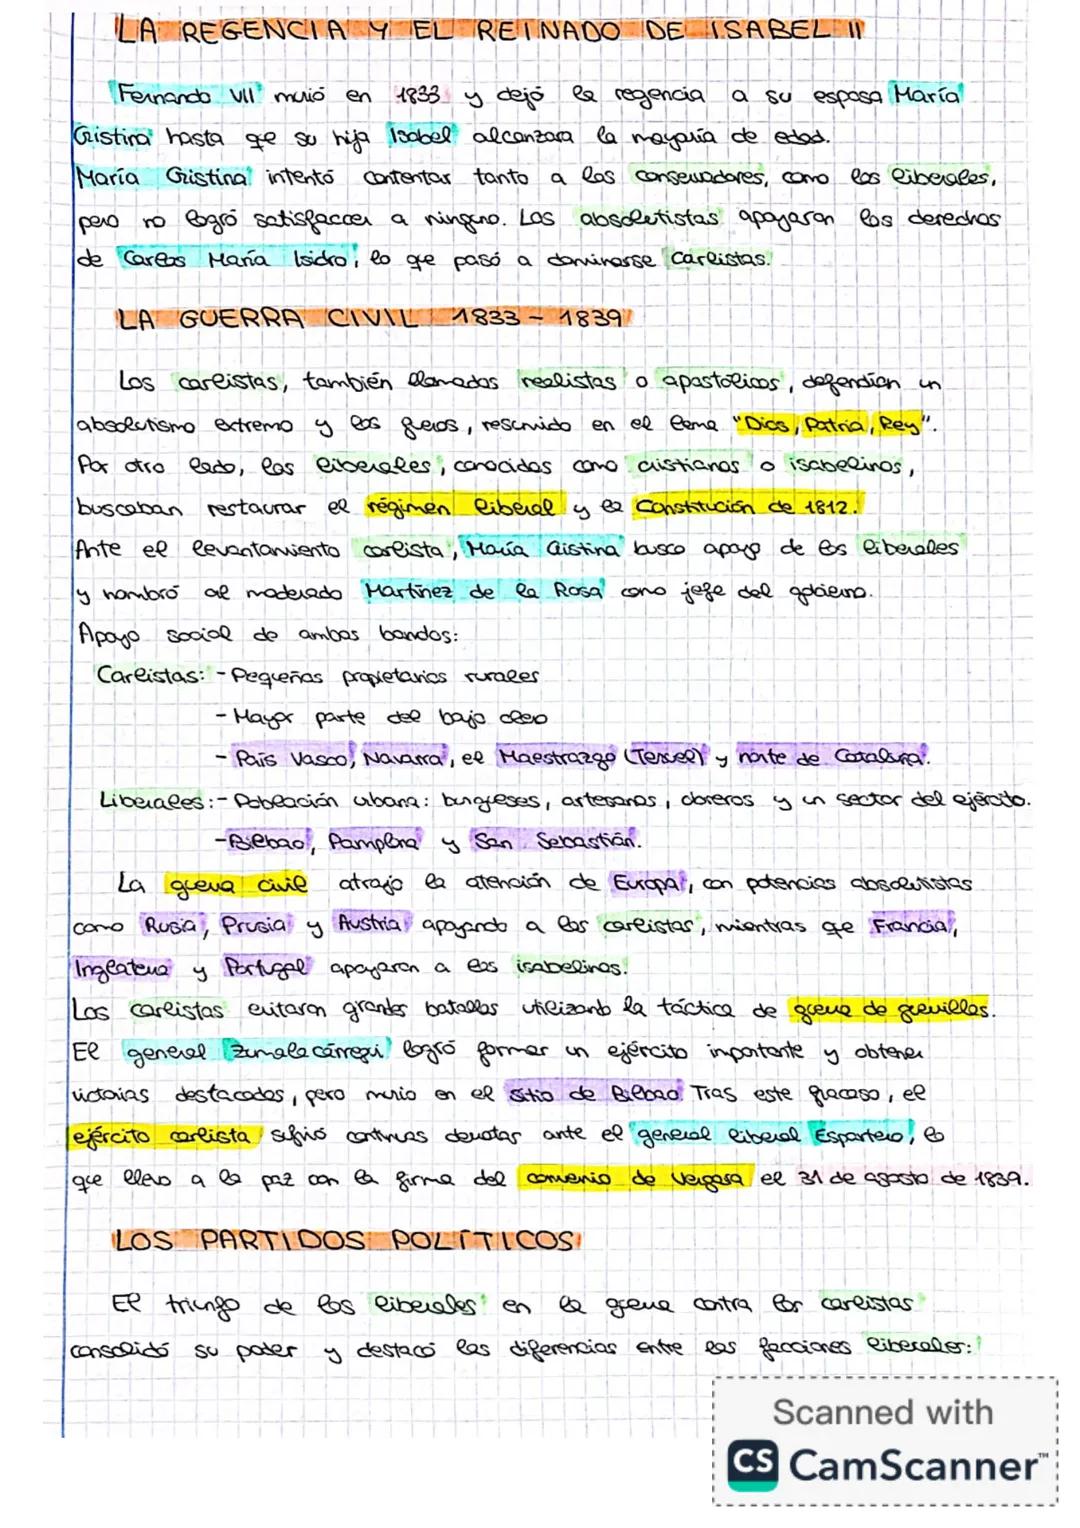 LA REGENCIA Y EL REINADO DE ISABEL II
Fernando VII murió en 1833 y dejó la regencia a su esposa María
Cristina hasta que su hija Isabel alcanzara la mayoría de edad.
María Cristina intentó contentar tanto a los conservadores, como los liberales,
pero no logró satisfaccer a ninguno. Los absolutistas apoyaron los derechos
de Carlos María Isidro, lo que pasó a dominarse Carlistas.
LA GUERRA CIVIL 1833 - 1839
Los carlistas, también llamados realistas o apostólicos, defendían un
absolutismo extremo y los fueros, resumido en el lema "Dios, Patria, Rey".
Por otro lado, los liberales, conocidos como cristianos o isabelinos,
buscaban restaurar el régimen liberal y la Constitución de 1812.
Ante el levantamiento carlista, María Cristina busco apoyo de los liberales
y nombró al moderado Martínez de la Rosa como jefe del gobierno.
Apoyo social de ambos bandos:
Carlistas: - Pequeños propietarios rurales
- Mayor parte del bajo clero
- País Vasco, Navarra, el Maestrazgo (Teruel) y norte de Cataluña.
Liberales: - Población urbana: burgueses, artesanos, obreros y un sector del ejército.
- Bilbao, Pamplona y San Sebastián.
La guerra civil atrajo la atención de Europa, con potencias absolutistas
como Rusia, Prusia y Austria apoyando a los carlistas, mientras que Francia,
Inglaterra y Portugal apoyaron a los isabelinos.
Los carlistas evitaron grandes batallas utilizando la táctica de guerra de guerrillas.
El general Zumalacárregui logró formar un ejército importante y obtener
victorias destacadas, pero murio en el sitio de Bilbao. Tras este fracaso, el
ejército carlista sufrió continuas derrotas ante el general liberal Espartero, lo
que llevo a la paz con la firma del convenio de Vergara el 31 de agosto de 1839.
LOS PARTIDOS POLÍTICOS
El triunfo de los liberales en la guerra contra los carlistas
consolidó su poder y destacó las diferencias entre las facciones liberales:
Scanned with
CS CamScanner™